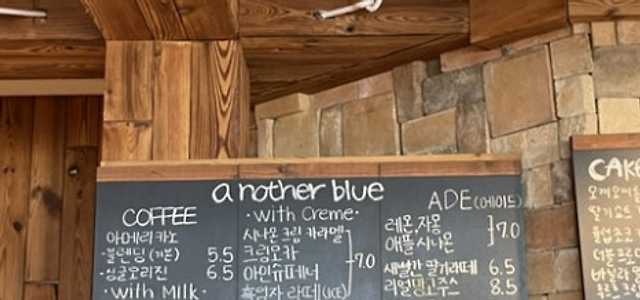 another blue
COFFEE
아메리카노
·블렌딩 (기본) 5.5
·싱글오리진 6.5
·with Milk·
·with Creme·
시나몬 크림 카라멜
크림모카
아인슈페너
흑임자 라떼 (ICE)
7.0
ADE (에이드)
레몬, 자몽
애플 시나몬
7.0
새빨간 딸기라떼 6.5
리얼망고주스 8.5
CAKE